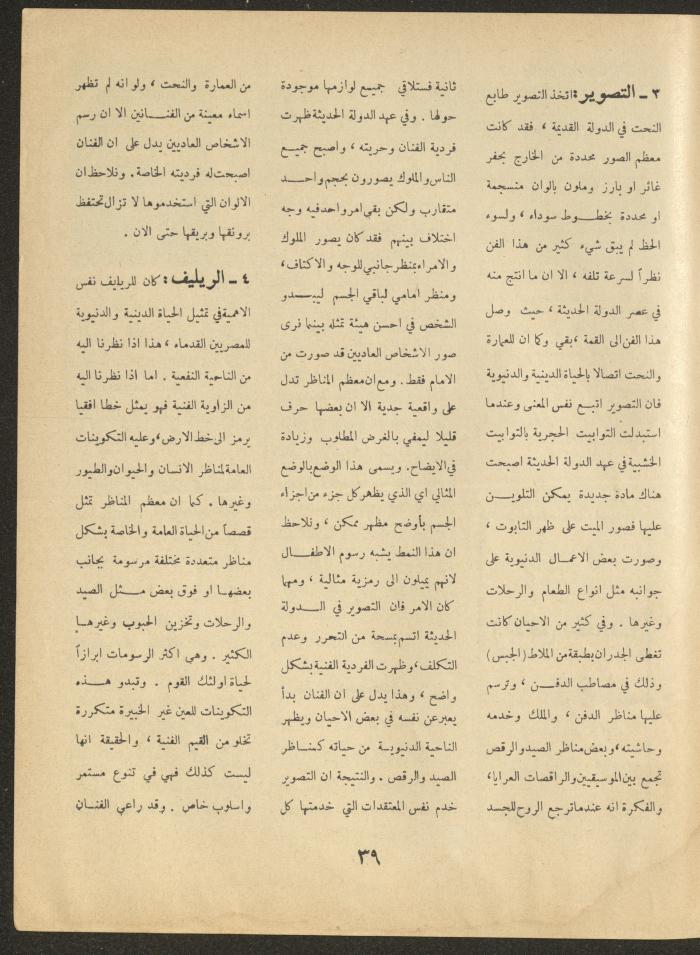 ٣ ـ التصوير : اتخذ التصوير طابع
النحت في الدولة القديمة ، فقد كانت
معظم الصور محددة من الخارج بحفر
غائر او بارز وملون بالوان منسجمة
او محددة بخطــوط سوداء ، ولسوء
الحظ لم يبق شيء كثير من هذا الفن
نظراً لسرعة تلفه ، الا ان ما انتج منه
في عصر الدولة الحديثة ، حيث وصل
هذا الفن الى القمة ، بقي وكما ان للعمارة
والنحت اتصالا بالحياة الدينية والدنيوية
فان التصوير اتبع نفس المعنى وعندما
استبدلت التوابيت الحجرية بالتوابيت
الخشبية في عهد الدولة الحديثة اصبحت
هناك مادة جديدة يمكن التلويــن
عليها فصور الميت على ظهر التابوت ،
وصورت بعض الاعمــال الدنيوية على
جوانبه مثل انواع الطعام والرحلات
وغيرها . وفي كثير من الاحيان كانت
تغطى الجدران بطبقة من الملاط (الجبس)
وذلك في مصاطب الدفــن ، وترسم
عليها مناظر الدفن ، والملك وخدمه
وحاشيته ، وبعض مناظر الصيد والرقص
تجمع بين الموسيقيين والراقصات العرايا ،
والفكرة انه عندما ترجع الروح للجسد
ثانية فستلاقي جميع لوازمها موجودة
حولها . وفي عهد الدولة الحديثة ظهرت
فردية الفنان وحريته ، واصبح جميع
الناس والملوك يصورون بحجم واحــد
متقارب ولكن بقي امر واحد فيه وجه
اختلاف بينهم فقد كان يصور الملوك
والامراء بمنظر جانبي للوجه والاكتاف ،
ومنظر امامي لباقي الجسم ليبــدو
الشخص في احسن هيئة تمثله بينما نرى
صور الاشخاص العاديين قد صورت من
الامام فقط . ومع ان معظم المناظر تدل
على واقعية جدية الا ان بعضها حرف
قليلا ليمفي بالغرض المطلوب وزيادة
في الايضاح . ويسمى هذا الوضع بالوضع
المثالي اي الذي يظهر كل جزء من اجزاء
الجسم بأوضح مظهر ممكن ، ونلاحظ
ان هذا النمط يشبه رسوم الاطفــال
لانهم يميلون الى رمزية مثالية ، ومهما
كان الامر فان التصوير في الــدولة
الحديثة اتسم بمسحة من التحرر وعدم
التكلف ، وظهرت الفردية الفنية بشكل
واضح ، وهذا يدل على ان الفنان بدأ
يعبر عن نفسه في بعض الاحيان ويظهر
الناحية الدنيوية من حياته كمنــاظر
الصيد والرقص . والنتيجة ان التصوير
خدم نفس المعتقدات التي خدمتها كل
من العمارة والنحت ، ولو انه لم تظهر
اسماء معينة من الفنــانين الا ان رسم
الاشخاص العاديين يدل على ان الفنان
اصبحت له فرديته الخاصة . ونلاحظ ان
الالوان التي استخدموها لا تزال تحتفظ
برونقها وبريقها حتى الان .
٤ ـ الريليف : كان للريايف نفس
الاهمية في تمثيل الحياة الدينية والدنيوية
للمصريين القدماء ، هذا اذا نظرنا اليه
من الناحية النفعية . اما اذا نظرنا اليه
من الزاوية الفنية فهو يمثل خطا افقيا
يرمز الى خط الارض ، وعليه التكوينات
العامة لمناظر الانسان والحيوان والطيور
وغيرها . كما ان معظم المناظر تمثل
قصصاً من الحياة العامة والخاصة بشكل
مناظر متعددة مختلفة مرسومة بجانب
بعضهــا او فوق بعض مــثل الصيد
والرحلات وتخزين الحبوب وغيرهــا
الكثير . وهي اكثر الرسومات ابرازاً
لحياة اولئك القوم . وتبدو هــذه
التكوينات للعين غير الخبيرة متكررة
تخلو من القيم الفنية ، والحقيقة انها
ليست كذلك فهي في تنوع مستمر
واسلوب خاص . وقد راعى الفنــان
٣٩